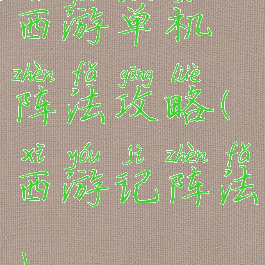 西游单机
zhèn fǎ gōng lüè
阵法攻略(
xī yóu jì zhèn fǎ
西游记阵法
)